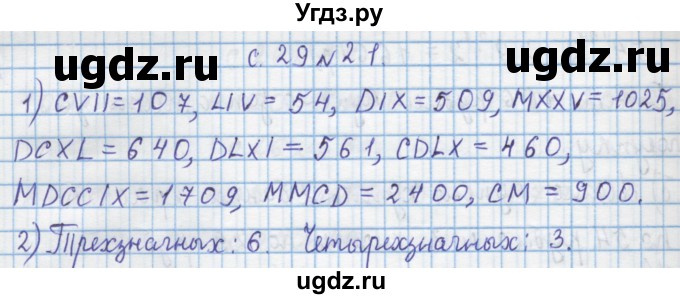 Угдз.ру
ugdz.ru ugdz.ru
с. 29 №21.
1) CVII = 107, LIV = 54, DIX = 509, MXXV = 1025,
ugdz.ru ugdz.ru
DCXL = 640, DLXI = 561, CDLX = 460,
MDCCIX = 1709, MMCD = 2400, CM = 900.
2) Трехзначных: 6. Четырехзначных: 3.
ugdz.ru ugdz.ru